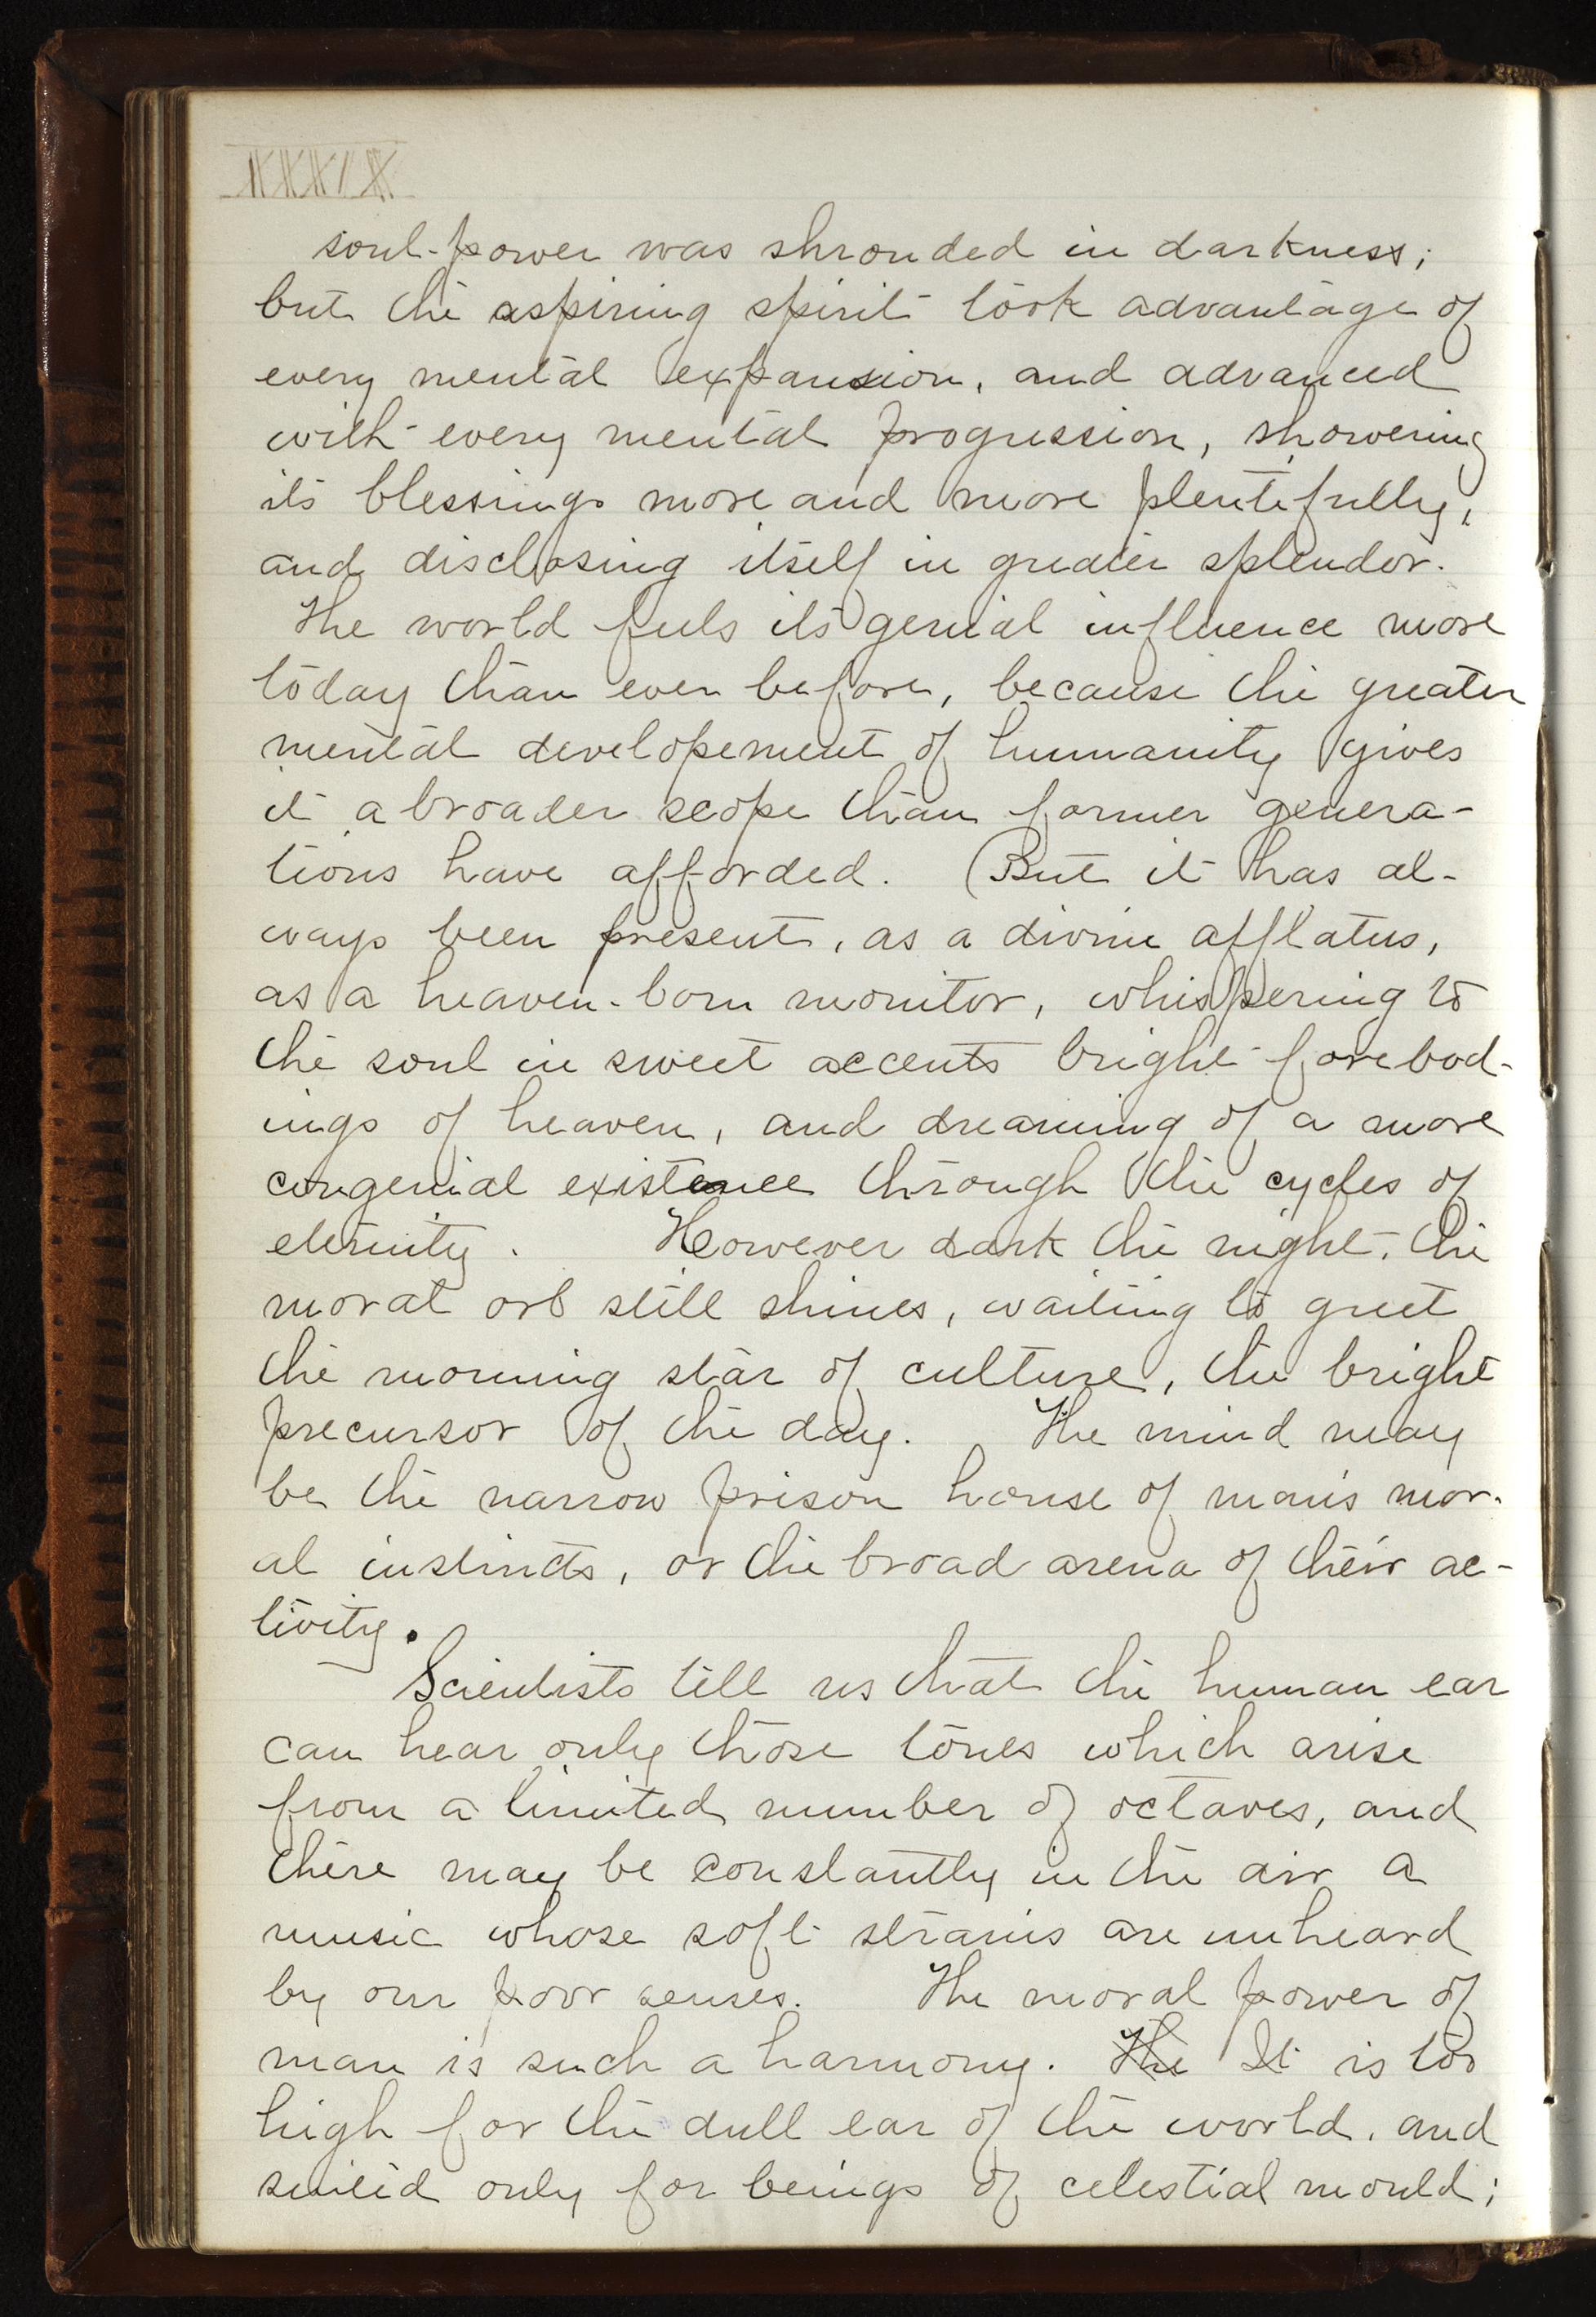 XXXIX
soul-power was shrouded in darkness;
but the aspiring spirit took advantage of
every mental expansion, and advanced
with every mental progression, showering
its blessings more and more plentifully,
and disclosing itself in greater splendor.
The world feels its genial influence more
today than ever before, because the greater
mental developement of humanity gives
it a broader scope than former genera-
tions have afforded. But it has al-
ways been present, as a divine afflatus,
as a heaven-born monitor, whispering to
the soul in sweet accents bright forebod-
ings of heaven, and dreaming of a more
congenial existence through the cycles of
eternity. However dark the night, the
moral orb still shines, waiting to greet
the morning star of culture, the bright
precursor of the day. The mind may
be the narrow prison house of man's mor-
al instincts, or the broad arena of their ac-
tivity.
Scientists tell us that the human ear
can hear only those tones which arise
from a limited number of octaves, and
there may be constantly in the air a
music whose soft strains are unheard
by our poor senses. The moral power of
man is such a harmony. The It is too
high for the dull ear of the world, and
suited only for beings of celestial mould;